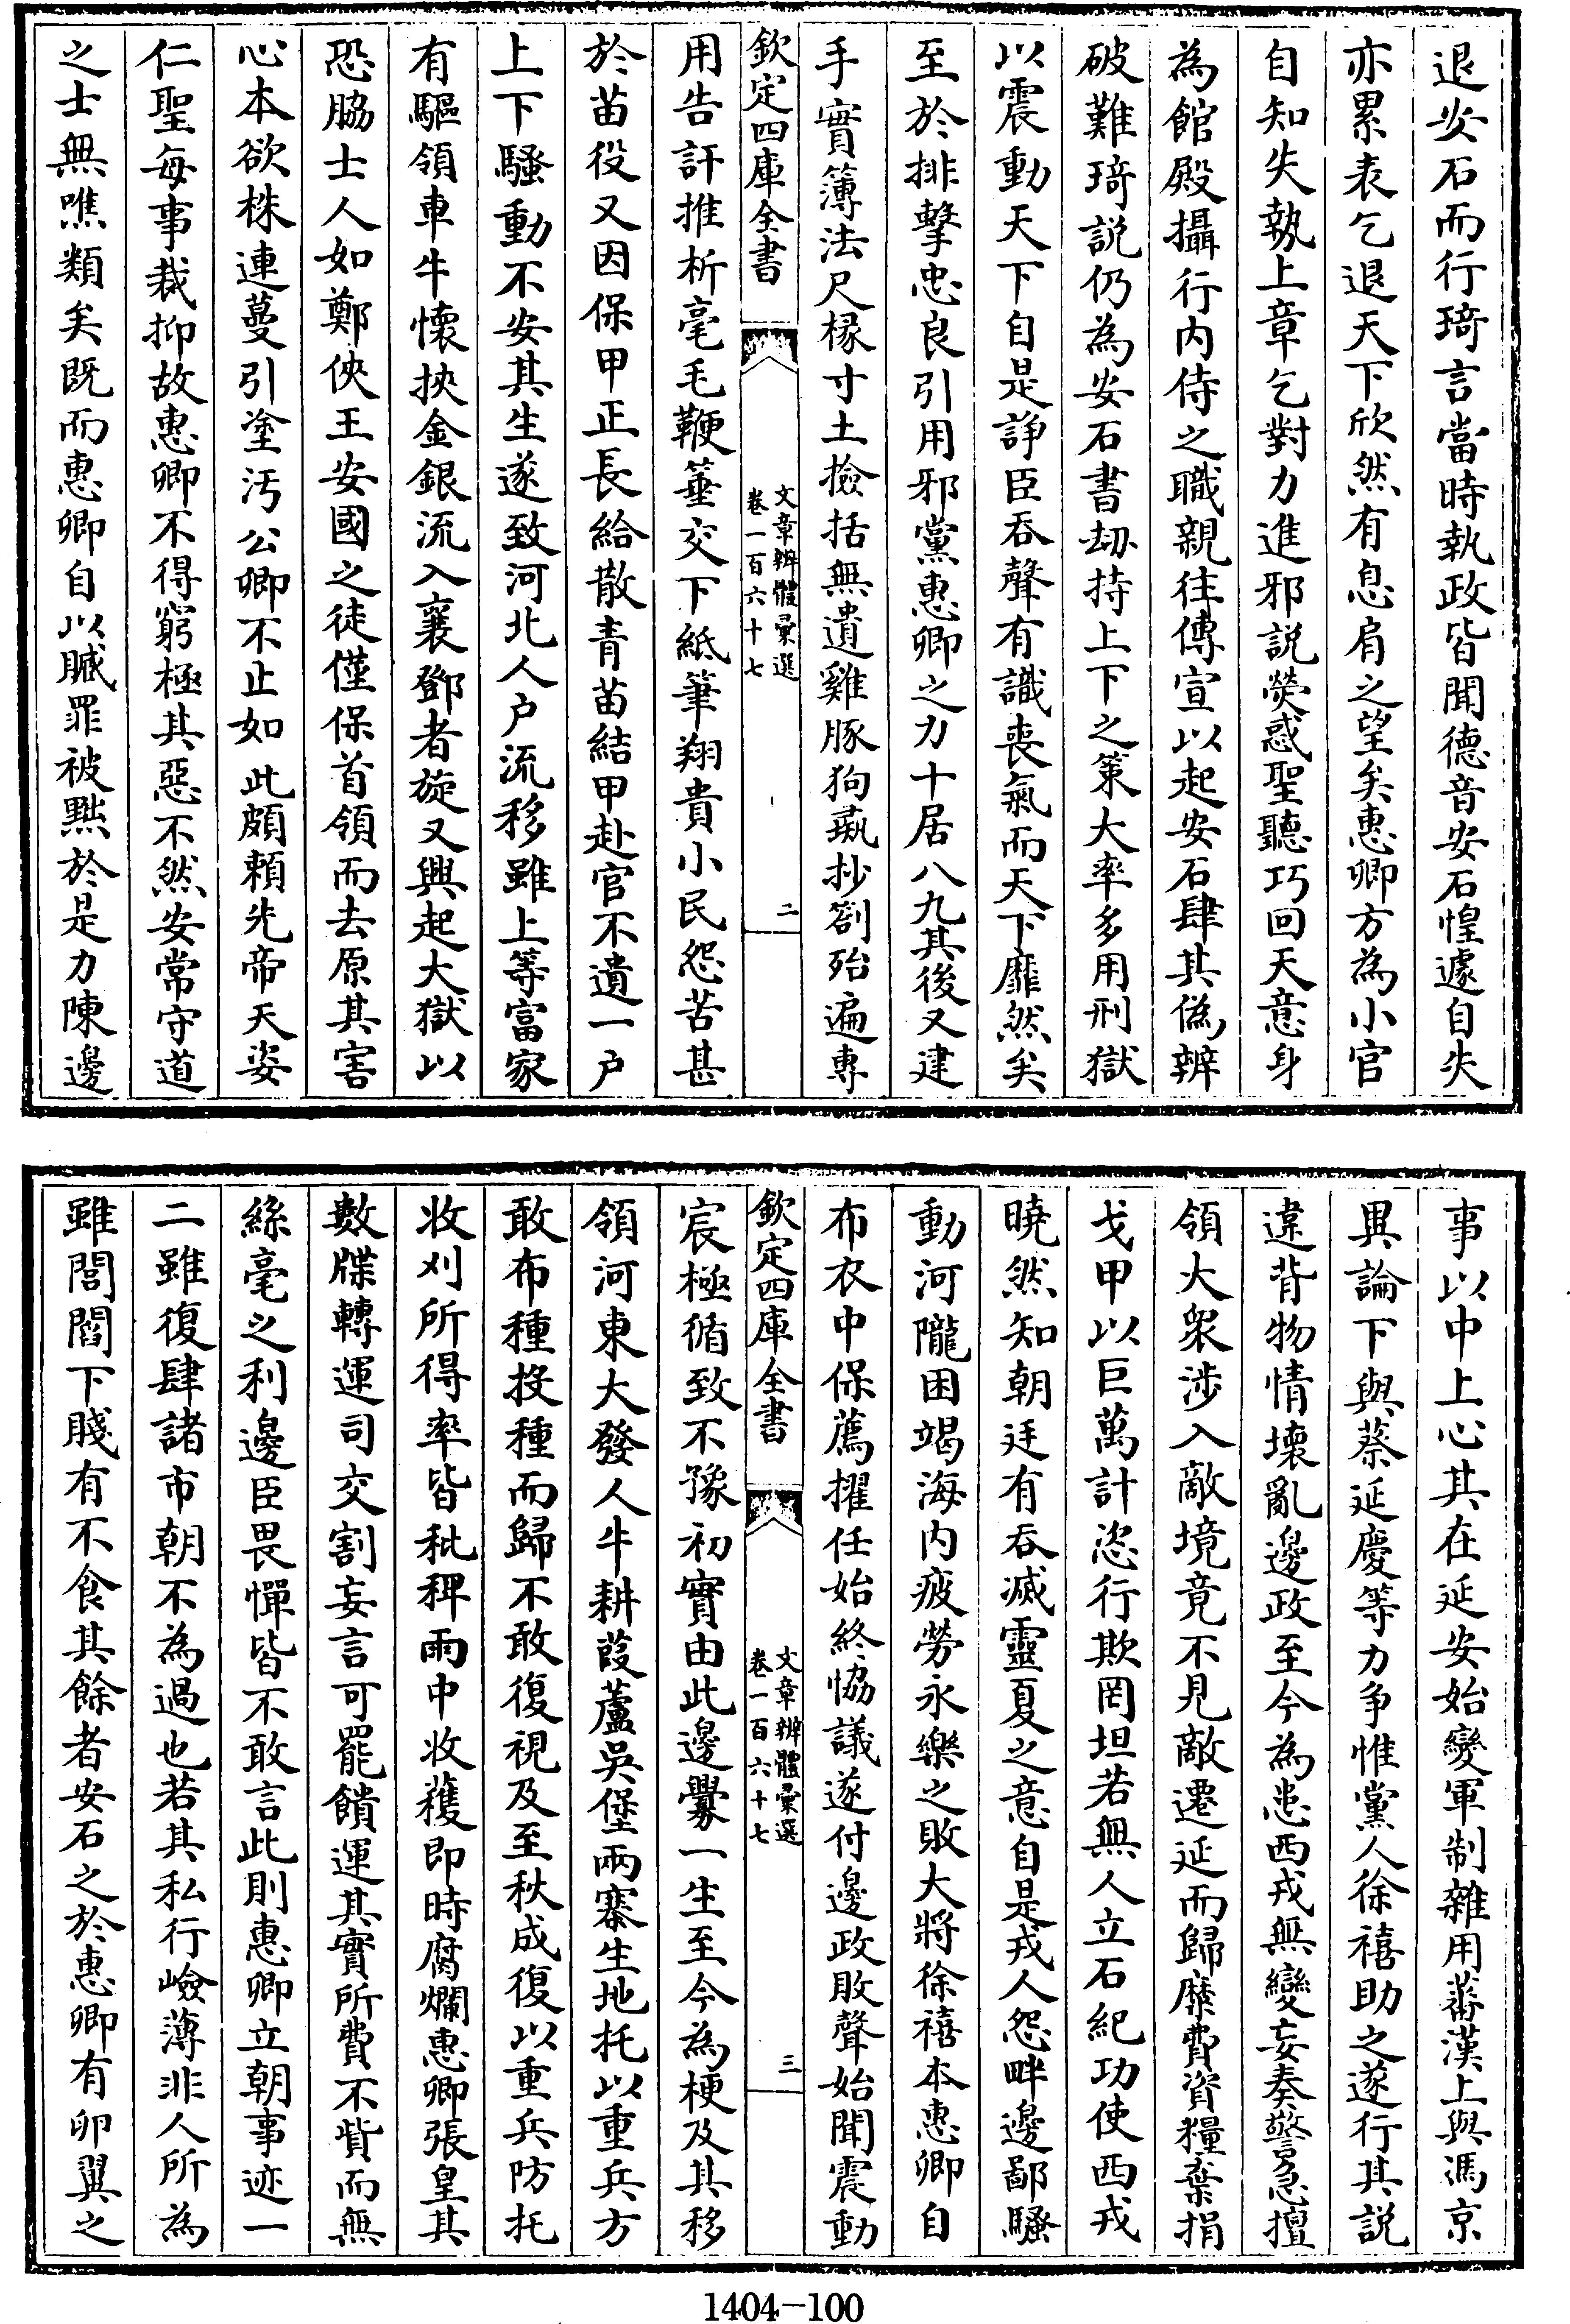 退安石而行琦言當時執政皆聞德音安石惶遽自失
亦累表乞退天下欣然有息肩之望矣惠卿方為小官
自知失勢上章乞對力進邪説熒惑聖聽巧回天意身
為館殿攝行内侍之職親往傳宣以起安石肆其偽辨
破難琦説仍為安石書劫持上下之策大率多用刑獄
以震動天下自是諍臣吞聲有識喪氣而天下靡然矣
至於排擊忠良引用邪黨惠卿之力十居八九其後又建
手實簿法尺椽寸土撿括無遺雞豚狗彘抄劄殆遍専
欽定四庫全書
文章辨體彚選
卷一百六十七
二
用告訐推析毫毛鞭箠交下紙筆翔貴小民怨苦甚
於苗役又因保甲正長給散青苗結甲赴官不遺一户
上下騷動不安其生遂致河北人户流移雖上等富家
有驅領車牛懷挾金銀流入襄鄧者旋又興起大獄以
恐脇士人如鄭俠王安國之徒僅保首領而去原其害
心本欲株連蔓引塗汚公卿不止如此頗頼先帝天姿
仁聖每事裁抑故惠卿不得窮極其惡不然安常守道
之士無噍類矣既而惠卿自以贓罪被黜於是力陳邊
事以中上心其在延安始變軍制雜用蕃漢上與馮京
異論下與蔡延慶等力争惟黨人徐禧助之遂行其説
違背物情壞亂邊政至今為患西戎無變妄奏警急擅
領大衆涉入敵境竟不見敵遷延而歸糜費資糧棄捐
戈甲以巨萬計恣行欺罔坦若無人立石紀功使西戎
曉然知朝廷有吞滅靈夏之意自是戎人怨畔邊鄙騷
動河隴困竭海内疲勞永樂之敗大將徐禧本惠卿自
布衣中保薦擢任始終協議遂付邊政敗聲始聞震動
欽定四庫全書
文章辨體彚選
卷一百六十七
三
宸極循致不豫初實由此邊釁一生至今為梗及其移
領河東大發人牛耕葭蘆吳堡兩寨生地托以重兵方
敢布種投種而歸不敢復視及至秋成復以重兵防托
收刈所得率皆秕稗雨中收穫即時腐爛惠卿張皇其
數牒轉運司交割妄言可罷饋運其實所費不貲而無
絲毫之利邊臣畏憚皆不敢言此則惠卿立朝事迹一
二雖復肆諸市朝不為過也若其私行嶮薄非人所為
雖閭閻下賤有不食其餘者安石之於惠卿有卵翼之
1404-100